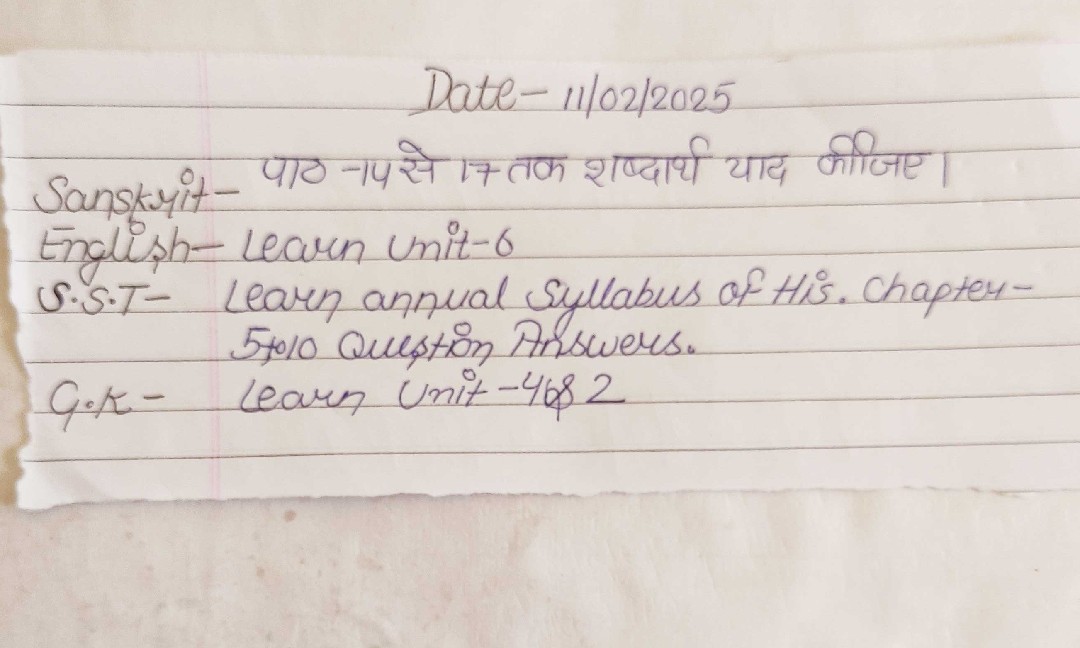 Date- 11/02/2025
Sanskrit- पाठ -14 से 17 तक शब्दार्थ याद कीजिए।
English- Learn Unit-6
S.S.T- Learn annual Syllabus of His. Chapter-
5to10 Question Answers.
G.K- Learn Unit -